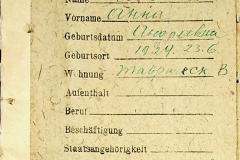 Vorname Анна
Geburtsdatum Андреевна
Geburtsort 1924. 23.6
Wohnung В
Aufenthalt
Beruf
Beschäftigung
Staatsangehörigkeit